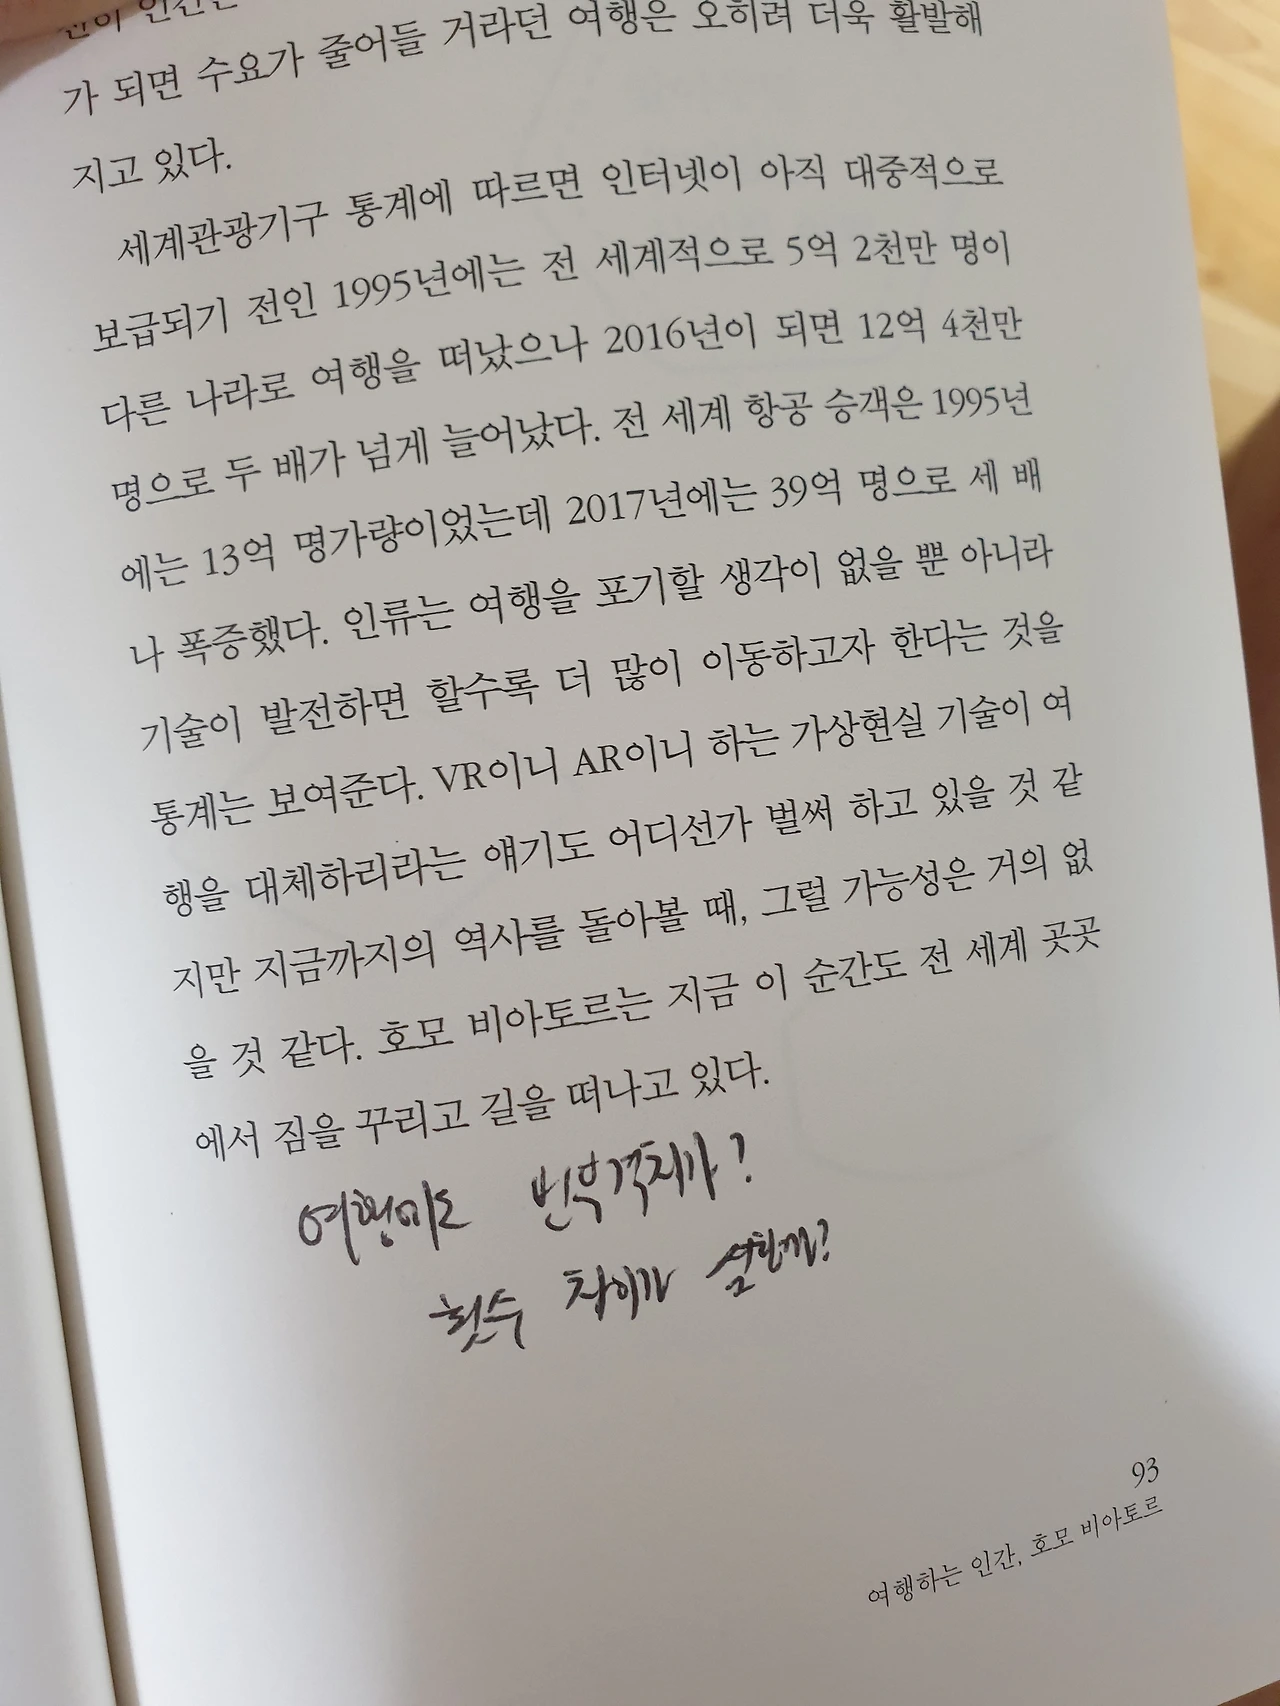 가 되면 수요가 줄어들 거라던 여행은 오히려 더욱 활발해
지고 있다.
세계관광기구 통계에 따르면 인터넷이 아직 대중적으로
보급되기 전인 1995년에는 전 세계적으로 5억 2천만 명이
다른 나라로 여행을 떠났으나 2016년이 되면 12억 4천만
명으로 두 배가 넘게 늘어났다. 전 세계 항공 승객은 1995년
에는 13억 명가량이었는데 2017년에는 39억 명으로 세 배
나 폭증했다. 인류는 여행을 포기할 생각이 없을 뿐 아니라
기술이 발전하면 할수록 더 많이 이동하고자 한다는 것을
통계는 보여준다. VR이니 AR이니 하는 가상현실 기술이 여
행을 대체하리라는 얘기도 어디선가 벌써 하고 있을 것 같
지만 지금까지의 역사를 돌아볼 때, 그럴 가능성은 거의 없
을 것 같다. 호모 비아토르는 지금 이 순간도 전 세계 곳곳
에서 짐을 꾸리고 길을 떠나고 있다.
여행에도 빈부격차가?
횟수 차이가 심할까?
93
여행하는 인간, 호모 비아토르